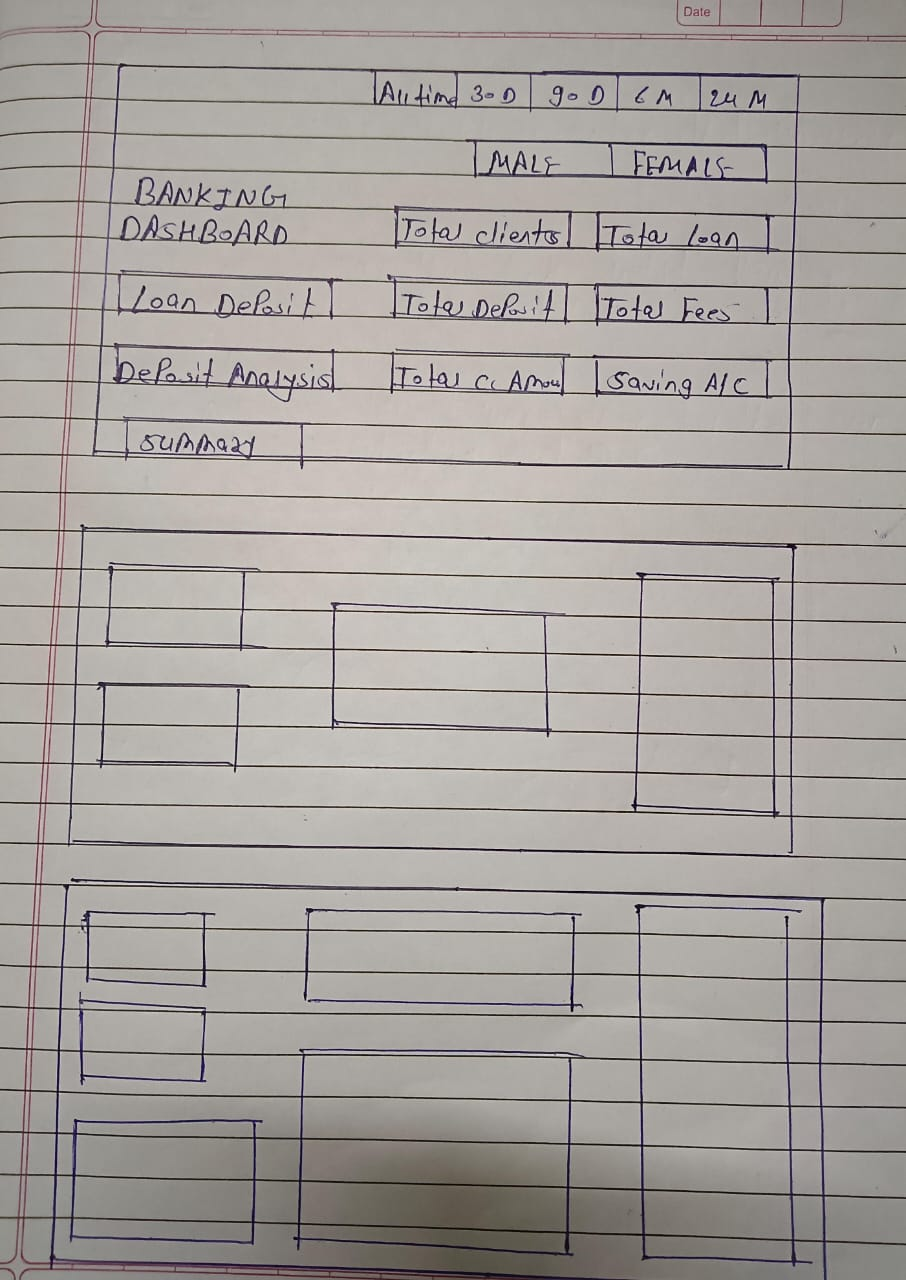 Date
All time 30D 90D 6M 24M
MALE FEMALE
BANKING
DASHBOARD
Total clients Total Loan
Loan Deposit Total Deposit Total Fees
Deposit Analysis Total CC Amou Saving A/C
SUMMARY